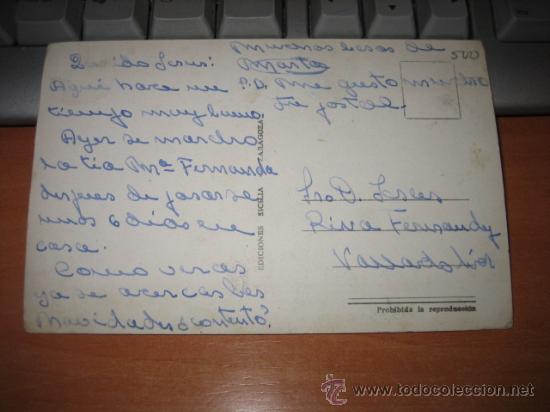 Querido Jesus:
Aqui hace un
tiempo muy bueno
Ayer se marcho
la tia Mª Fernanda
despues de pasarse
unos 6 dias en
casa.
Como veras
ya se acercan las
Navidades contento
muchos besos de
Marta
P.D. Me gusto mucho
tu postal.
500
EDICIONES SICILIA
ZARAGOZA
Sr. D. Jesus
Riva Fernandez
Valladolid
Prohibida la reproducción
www.todocoleccion.net
todocoleccion.net